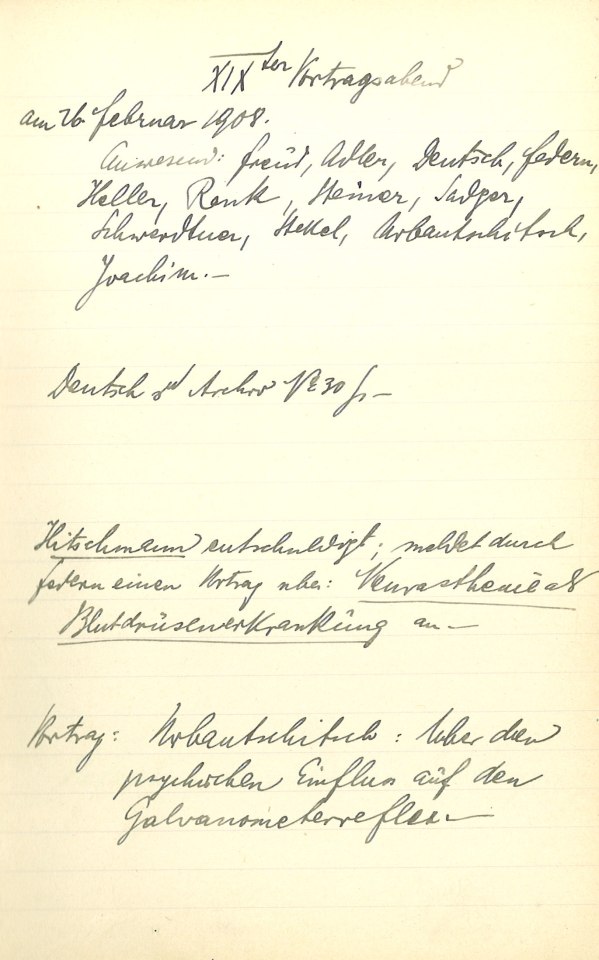 XIXter Vortragsabend
am 26. Februar 1908.
Anwesend: Freud, Adler, Deutsch, Federn,
Heller, Rank, Steiner, Sadger,
Schwerdtner, Stekel, Urbantschitsch,
Joachim.–
Deutsch Archiv 30
Hitschmann entschuldigt; meldet durch
Federn einen Vortrag über: Neurasthenie als
Blutdrüsenerkrankung an.–
Vortrag: Urbantschitsch: Über den
psychischen Einfluss auf den
Galvanometerreflex.–